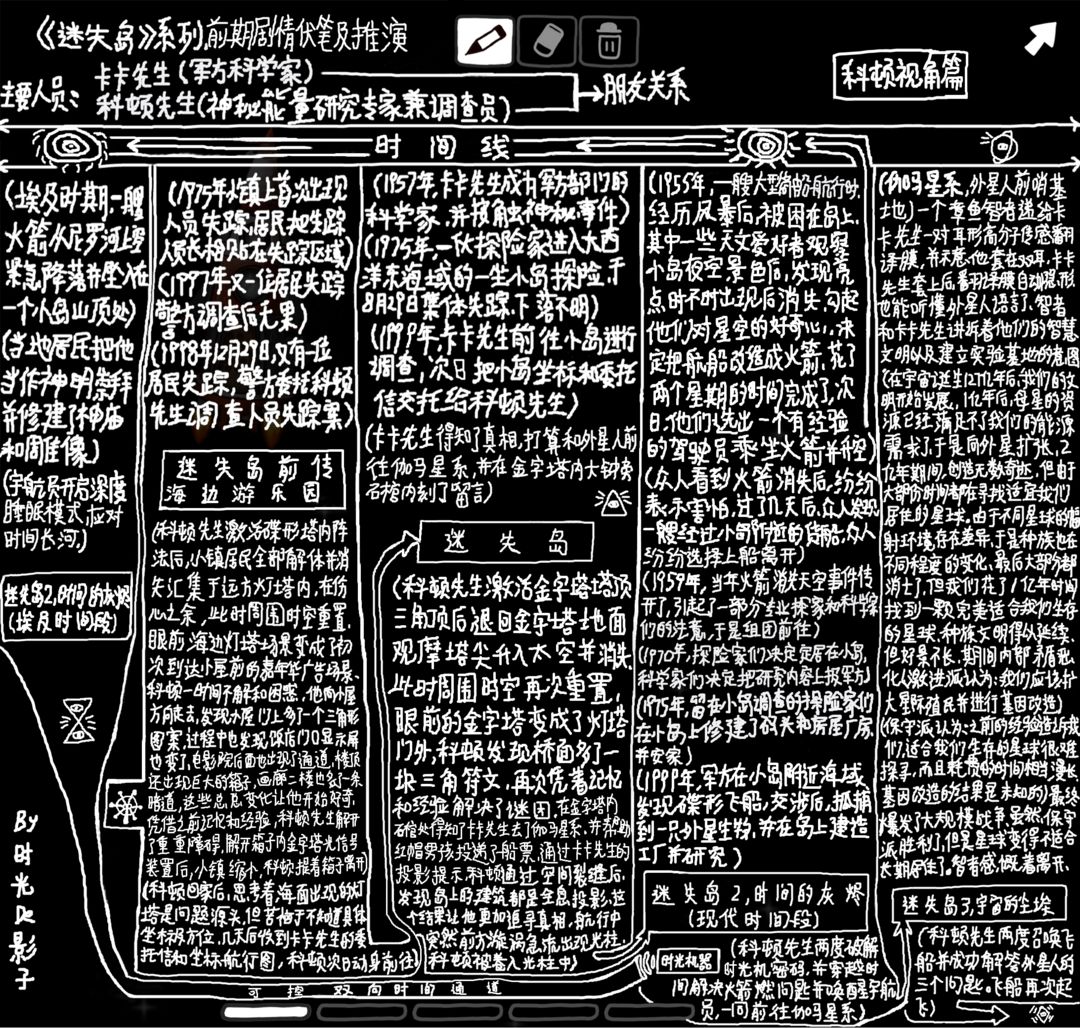 《迷失岛》系列.前期剧情伏笔及推演
主要人员：
卡卡先生(军方科学家)
科顿先生(神秘能量研究专家兼调查员)
朋友关系
科顿视角篇
时间线
(埃及时期,一艘
火箭从尼罗河上空
紧急降落并坠入在
一个小岛山顶处)
(当地居民把他
当作神明祭拜
并修建了神庙
和雕像)
(宇航员开启深度
睡眠模式,应对
时间长河.)
迷失岛2,时间的灰烬
(埃及时间段)
By
时
光
De
影
子
(1975年小镇上首次出现
人员失踪,居民把失踪
人员长相贴在失踪区域)
(1977年又一位居民失踪
警方调查后无果)
(1998年12月29日,又有一位
居民失踪,警方委托科顿
先生调查人员失踪案)
迷失岛前传
海边游乐园
(科顿先生激活碟形塔内阵
法后,小镇居民全部解体并消
失汇集于远方灯塔内,在伤
心之余,此时周围时空重置,
眼前,海边灯塔场景变成了初
次到达小屋前的嘉年华广告场景.
科顿一时间不解和困惑,他向小屋
方向走去,发现小屋门上多了一个三角形
图案,过程中也发现饭店门口显示屏
也变了,电影院后面也出现了通道,楼顶
还出现巨大的箱子,画廊二楼也多了一条
暗道,这些总总变化让他开始好奇,
凭借之前记忆和经验,科顿先生解开
了重重障碍,解开箱子内金字塔光信号
装置后,小镇缩小,科顿提着箱子离开)
(科顿回家后,思考着海面出现的灯
塔是问题源头,但苦于不知道具体
坐标及方位,几天后收到卡卡先生的委
托信和坐标航行图,科顿次日动身前往)
(1957年,卡卡先生成为军方部门的
科学家,并接触神秘事件)
(1975年,一伙探险家进入大西
洋东海域的一坐小岛探险,于
8月29日集体失踪.下落不明)
(1999年卡卡先生前往小岛进行
调查,次日把小岛坐标和委托
信交托给科顿先生)
(卡卡先生得知了真相,打算和外星人前
往伽马星系,并在金字塔内大钟旁
石棺内刻了留言)
迷失岛
(科顿先生激活金字塔塔顶
三角顶后退回金字塔地面
观摩塔尖升入太空并消失
此时周围时空再次重置,
眼前的金字塔变成了灯塔
门外,科顿发现桥面多了一
块三角符文,再次凭着记忆
和经验解决了谜团.在金字塔内
石棺处得知卡卡先生去了伽马星系,并帮助
红帽男孩投递了船票,通过卡卡先生的
投影提示科顿通过空间裂缝后,
发现岛上的建筑都是全息投影,这
个结果让他更加追寻真相,航行中
突然前方漩涡急流出现光柱,
科顿被卷入光柱中)
(1955年,一艘大型船舶航行时,
经历风暴后,被困在岛上.
其中一些天文爱好者观察
小岛夜空景色后,发现亮
点,时不时出现后消失,勾起
他们对星空的好奇心,决
定把航船改造成火箭,花了
两个星期的时间完成了,次
日,他们选出一个有经验
的驾驶员乘坐火箭升空)
(众人看到火箭消失后,纷纷
表示害怕,过了几天后,众人发现
一艘经过小岛附近的货船,众人
纷纷选择上船离开)
(1959年,当年火箭消失天空事件传
开了,引起了一部分专业探家和科学家
们的注意,于是组团前往)
(1970年,探险家们决定定居在小岛,
科学家们决定把研究内容上报军方)
(1975年,留在小岛调查的探险家们
在小岛上修建了码头和房屋厂房
并安家)
(1999年,军方在小岛附近海域
发现碟形飞船,交涉后,抓捕
到一只外星生物,并在岛上建造
工厂并研究)
迷失岛2,时间的灰烬
(现代时间段)
时光机器
(科顿先生两度破解
时光机密码,并穿越时
间解决火箭燃问题并唤醒宇航
员,一同前往伽马星系)
可控双向时间通道
(伽马星系,外星人前哨基
地)一个章鱼智者递给卡
卡先生一对耳形高分子传感翻
译膜,并示意他套在耳朵,卡卡
先生套上后翻译膜自动隐形
也能听懂外星人语言了.智者
和卡卡先生讲诉着他们的智慧
文明以及建立实验基地的意图
(在宇宙诞生12亿年后,我们的文
明开始发展,1亿年后,母星的资
源已经满足不了我们的能源
需求了,于是向外星扩张,2
亿年期间,创造无数奇迹,但由于
大部份时间都在寻找适宜我们
居住的星球.由于不同星球的辐
射环境存在差异,于是种族也在
不同程度的变化.最后大部份都
消亡了,但我们花了1亿年时间
找到一颗完美适合我们生存
的星球,种族文明得以延续.
但好景不长,期间内部矛盾激
化(激进派认为:我们应该扩
大星际殖民并进行基因改造)
(保守派认为:之前的经验告诉我
们,适合我们生存的星球很难
探寻,而且耗费的时间相当漫长,
基因改造的结果是未知的)最终
爆发了大规模战争.虽然,保守
派胜利了,但是星球变得不适合
长期居住了.智者感慨着离开.
迷失岛3,宇宙的尘埃
(科顿先生两度召唤飞
船并成功解答外星人的
三个问题.飞船再次起
飞)